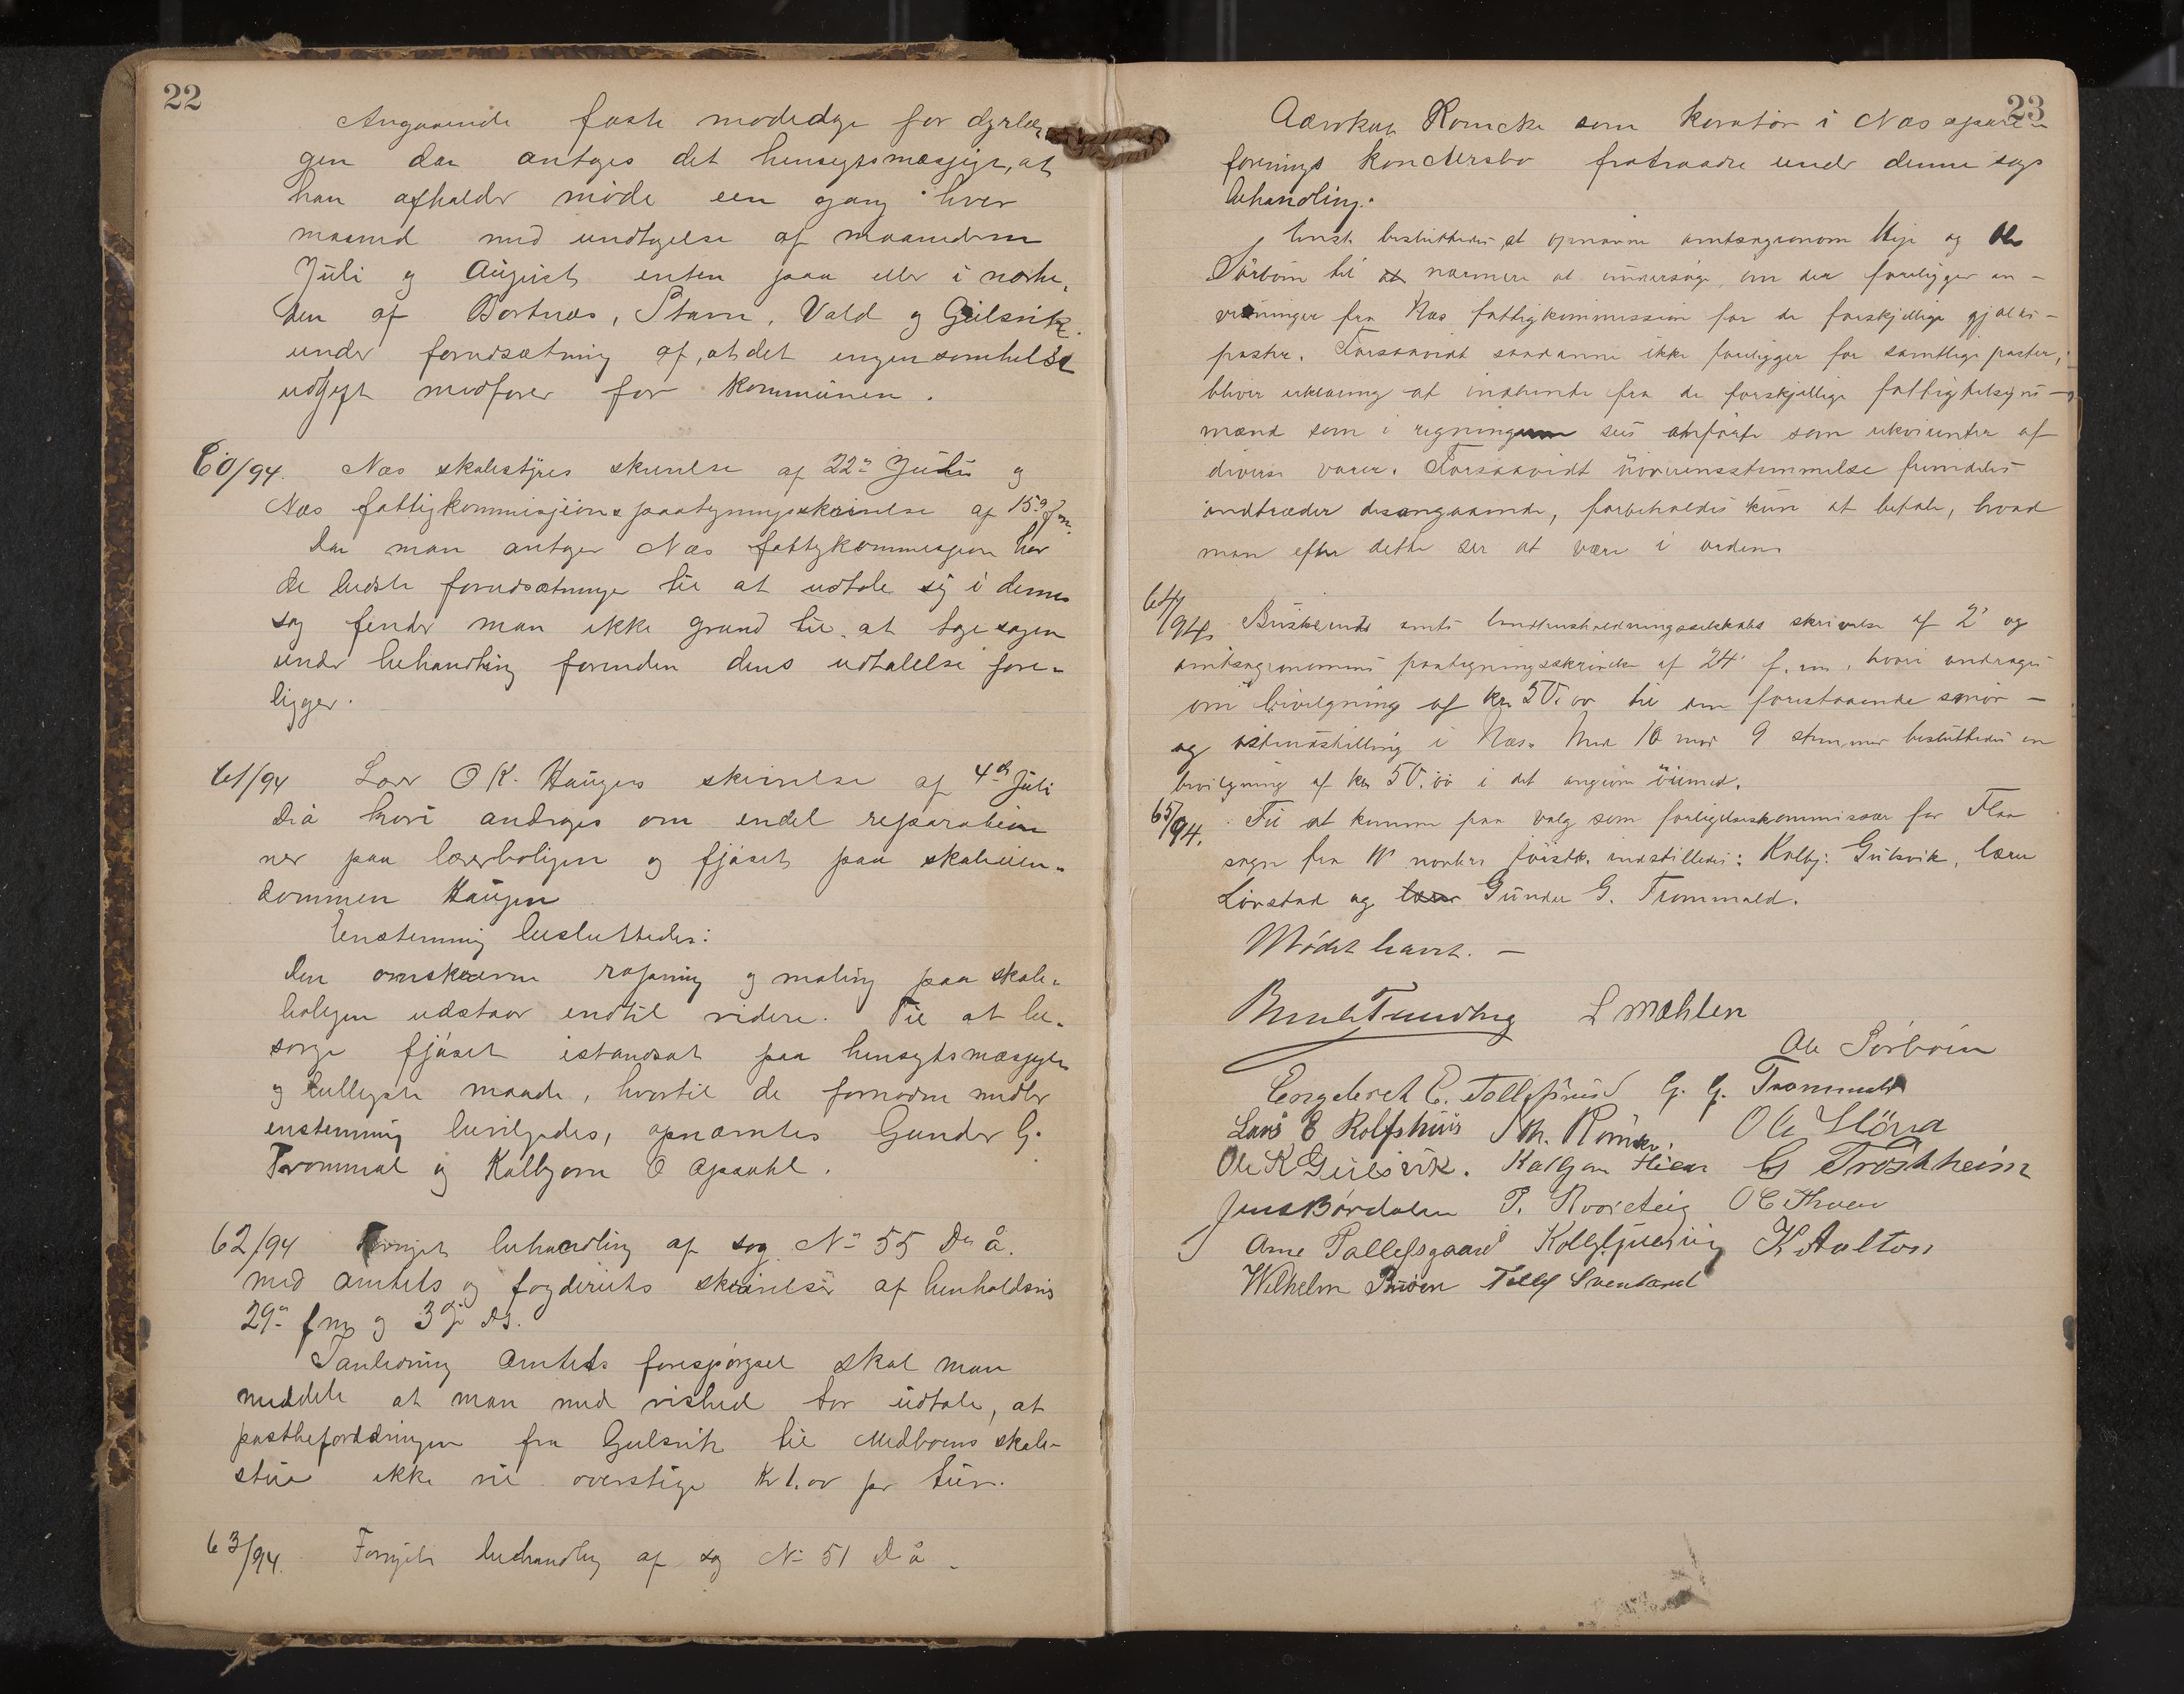 22
Angaaende faste mødedage for dyrlæ-
gen da antages det hensigtsmæssigt, at
han afholder møde een gang hver
maaned med undtagelse af maanederne
Juli og August enten paa eller i nærhe-
den af Bortnæs, Stavn, Vald og Gulsvik
under forudsætning af, at det ingensomhelst
udgift medfører for kommunen.
60/94. Næs skolestyres skrivelse af 22de Juni og
Næs fattigkommissions paategningsskrivelse af 15de f.m.
Da man antager Næs fattigkommission har
de bedste forudsætninger til at udtale sig i denne
sag finder man ikke grund til at tage sagen
under behandling forinden dens udtalelse fore-
ligger.
61/94 Lærer O K. Haugens skrivelse af 4de Juli
d.å hvori andrages om endel reparatio-
ner paa lærerboligen og fjöset paa skoleeien-
dommen Haugen
Enstemmig besluttedes:
Den omskrevne rapning og maling paa skole-
boligen udstaar indtil videre. Til at be-
sørge fjöset istandsat paa hensigtsmæssigste
og billigste maade, hvortil de fornødne midler
enstemmig bevilgedes, opnævntes Gunder G.
Trommal og Kolbjørn O Opsahl.
62/94 Fornyet behandling af sag No 55 d. å.
med amtets og fogderiets skrivelser af henholdsvis
29de f.m. og 3dje ds.
I anledning amtets forespørgsel skal man
meddele at man med vished tør udtale, at
postbefordringen fra Gulsvik til Medboens skole-
stue ikke vil overstige Kr 1.00 pr tur.
63/94. Fornyet behandling af sag No 51 d å -
23
Romcke som kurator i Næs spare-
forenings fratraadte under denne sags
behandling.
Enst. besluttedes at opnævne amtsagronom og Ole
Sörbön til at nærmere at undersøge, om der foreligger an-
visninger fra Næs fattigkommission for de forskjellige gjælds-
poster. Forsaavidt saadanne ikke foreligger for samtlige poster,
bliver erklæring at indhente fra de forskjellige fattigtilsyns-
mænd som i regningerne sees anførte som rekvirenter af
diverse varer. Forsaavidt överensstemmelse fremdeles
indtræder desangaaende, forbeholdes kun at betale, hvad
man efter dette ser at være i orden.
64/94. Buskeruds amts landhusholdningsselskabs skrivelse af 2' og
amtsagronomens paategningsskrivelse af 24' f. m., hvori andrages
om bevilgning af kr. 50.00 til en forestaaende smör-
og ostudstilling i Næs. Med 10 mod 9 stemmer besluttedes en
bevilgning af kr 50.00 i det angivne öiemed.
65/94. Til at komme paa valg som forligelseskommissær for Flaa
sogn fra indstilledes: Kolbj: Gulsvik, lærer
Lörstad og Gunder G. Trommald.
Mödet hævet. -
L Mæhlen
Ole Sörböin
Engebret E. Tollefsrud G. G. Trommald
Lars E Rolfshuus Th. Romcke. Ole
Ole K Gulsvik. Kolbjørn G Tröstheim
Jens Børdalen P. O E Thoen
Arne Pallesgaard K Aalton
Wilhelm Bruøen Tollef Svenkerud